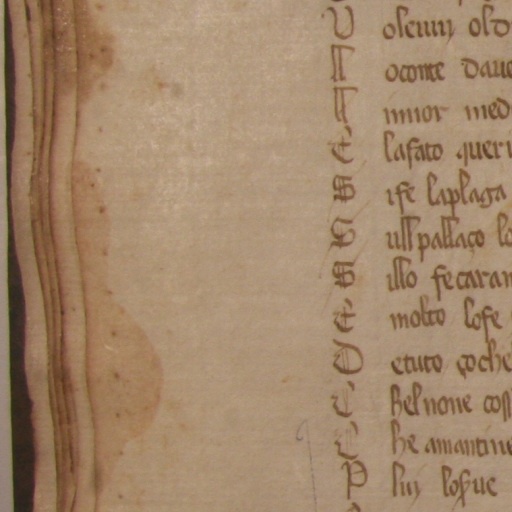 U oleuuj old
I oconte daue
I inior med
E lafato queri
S ise laplaga
E ull pallaço lo
S illo fecaran
E molto lofe
D etuto çoche
C hel none coss
C he amantine
P lui losue